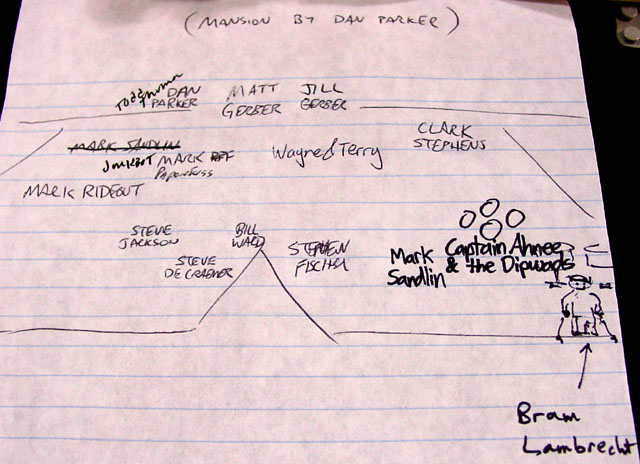 (MANSION BY DAN PARKER)
DAN PARKER
MATT GERBER
JILL GERBER
CLARK STEPHENS
MARK SANDLIN
MARK
Wayne & Terry
MARK RIDEOUT
STEVE JACKSON
BILL WARD
STEVE DE CRAEMER
STEPHEN FISCHER
Mark Sandlin
Captain Ahnee & the Dipwads
Bram
Lambrecht